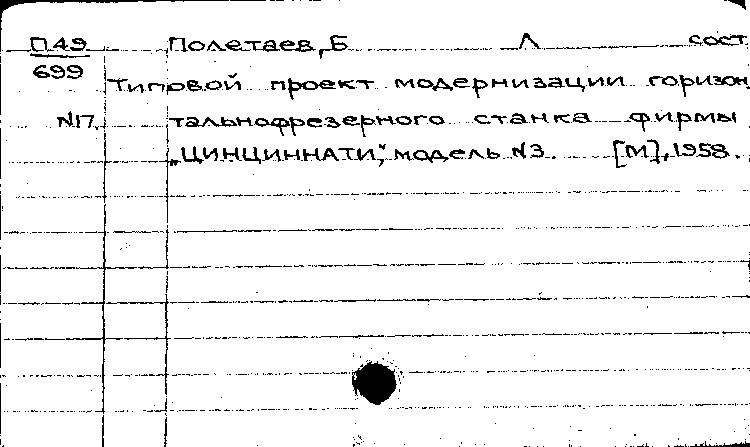 П49 Полетаев, Б Л сост
699 Типовой проект модернизации горизон
N17 тальнофрезерного станка фирмы
„ЦИНЦИННАТИ“, модель N3. [М], 1958.